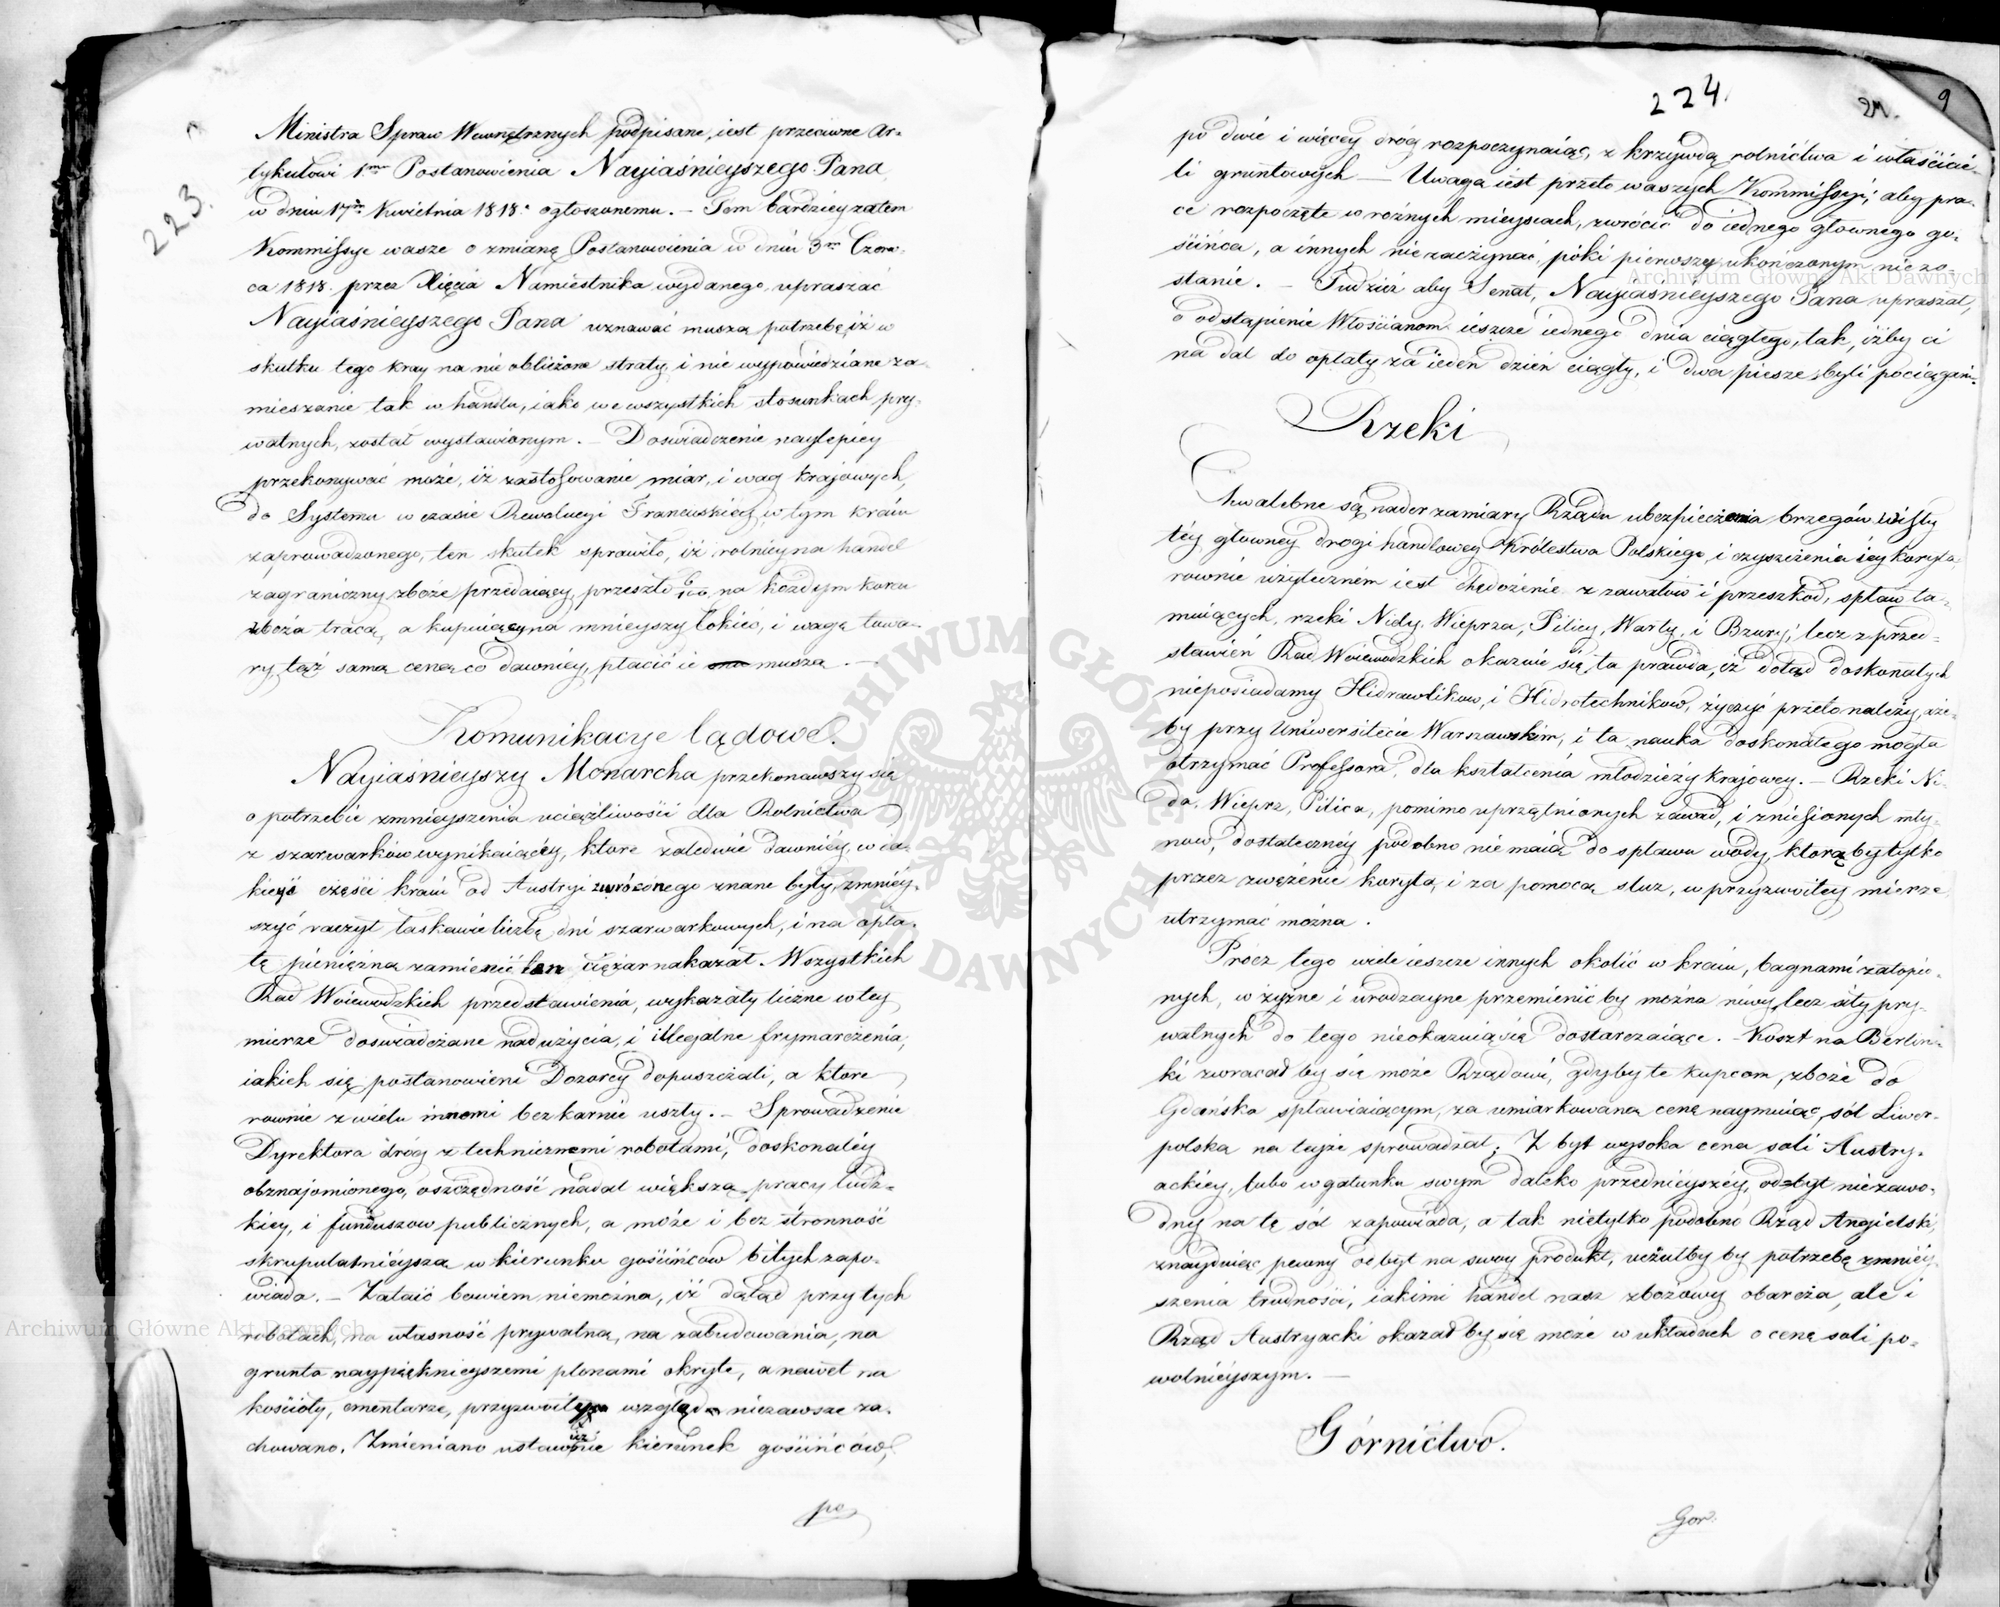 223.
Ministra Spraw Wewnętrznych podpisane, iest przeciwne Ar-
tykułowi 1mu Postanowienia Nayiaśnieyszego Pana
w dniu 17m Kwietnia 1818. ogłoszonemu. – Tem bardziey zatem
Kommissye wasze o zmianę Postanowienia w dniu 3m Czerw-
ca 1818. przez Xięcia Namiestnika wydanego, upraszać
Nayiaśnieyszego Pana uznawać muszą potrzebę, iż w
skutku tego kray na nie obliczone straty, i nie wypowiedziane za-
mieszanie tak w handlu, iako we wszystkich stosunkach pry-
watnych, został wystawionym. – Doswiadczenie naylepiey
przekonywać może, iż zastosowanie miar, i wag krajowych,
do Systemu w czasie Rewolucyi Francuskiey, w tym kraiu
zaprowadzonego, ten skutek sprawiło, iż rolnicy na handel
zagraniczny zboże przedaiący, przeszło 6/100 na każdym korcu
zboża tracą, a kupuiący na mnieyszy łokieć, i wagę towa-
ry, tąż samą ceną co dawniey, płacić ie muszą. –
Komunikacye lądowe.
Nayiaśnieyszy Monarcha przekonawszy się
o potrzebie zmnieyszenia uciążliwości dla Rolnictwa
z szarwarków wynikaiącéy, które zaledwie dawniéy, w ia-
kieyś części kraiu od Austryi zwróconego znane były, zmniéy-
szyć raczył łaskawie liczbę dni szarwarkowych, i na opła-
tę pieniężną zamienić ten ciężar nakazał. Wszystkich
Rad Woiewodzkich przedstawienia, wykazały liczne w tey
mierze doswiadczane nadużycia, i illegalne frymarczenia,
iakich się postanowieni Dozorcy dopuszczali, a które
rownie z wielu innemi bezkarnie uszły. – Sprowadzenie
Dyrektora dróg z technicznemi robotami, doskonaléy
obznajomionego, oszczędność nadal większą pracy ludz-
kiey, i funduszow publicznych, a może i bez stronność
skrupulatnieyszą w kierunku gościńców bitych zapo-
wiada. – Zataić bowiem niemożna, iż dotąd przy tych
robotach, na własność prywatną, na zabudowania, na
grunta naypięknieyszemi plonami okryte, a nawet na
kościoły, cmentarze, przyzwoity wzgląd niezawsze za-
chowano. Zmieniano ustawicznie kierunek gościńców,
po
224.
21.
9
po dwie i więcey dróg rozpoczynaiąc, z krzywdą rolnictwa i właścicie-
li gruntowych – Uwagą iest przeto waszych Kommissyi, aby pra-
ce rozpoczęte w rożnych mieyscach, zwrócić do iednego głownego go-
ścińca, a innych nie zaczynać, póki pierwszy ukończonym nie zo-
stanie. – Tudzież aby Senat, Nayiaśnieyszego Pana upraszał,
o odstąpienie Włościanom ieszcze iednego dnia ciągłego, tak, iżby ci
na dal do opłaty za ieden dzień ciągły, i dwa piesze, byli pociągani.
Rzeki
Chwalebne są nader zamiary Rządu ubezpieczenia brzegów Wisły
téy głowney drogi handlowey Królestwa Polskiego, i czyszczenia iey koryta,
rownie użytecznem iest chędożenie z zawałów i przeszkod, spław ta-
muiących, rzeki Nidy, Wieprza, Pilicy, Warty, i Bzury; lecz z przed-
stawień Rad Woiewodzkich okazuie się ta prawda, iż dotąd doskonałych
nieposiadamy Hidraulikow, i Hidrotechników, życzyć przeto należy, aże-
by przy Uniwersitecie Warszawskim, i ta nauka doskonałego mogła
otrzymać Professora, dla kształcenia młodzieży krajowey. – Rzeki Ni-
da, Wieprz, Pilica, pomimo uprzątnionych zawad, i zniesionych mły-
now, dostateczney podobno nie maią do spławu wody, którąby tylko
przez zwężenie koryta, i za pomocą sluz, w przyzwoitey mierze,
utrzymać można.
Prócz tego wiele ieszcze innych okolic w kraiu, bagnami zatopio-
nych, w żyzne i urodzayne przemienić by można niwy, lecz siły pry-
watnych do tego nieokazuią się dostarczaiące. – Koszt na Berlin-
ki zwracał by się może Rządowi, gdyby te kupcom, zboże do
Gdańska spławiaiącym, za umiarkowaną cenę naymuiąc, sól Liwer-
polską na tejże sprowadzał. Z byt wysoka cena soli Austry-
ackiey, lubo w gatunku swym daleko przednieyszéy, odbyt niezawo-
dny na tę sól zapowiada, a tak nietylko podobno Rząd Angielski,
znayduiąc pewny odbyt na swoy produkt, uczułby by potrzebę zmniey-
szenia trudności, iakimi handel nasz zbożowy obarcza, ale i
Rząd Austryacki okazałby się może w układach o cenę soli po-
wolnieyszym. –
Górnictwo.
Gor:
Archiwum Główne Akt Dawnych
Archiwum Główne Akt Dawnych
ARCHIWUM GŁÓWNE AKT DAWNYCH